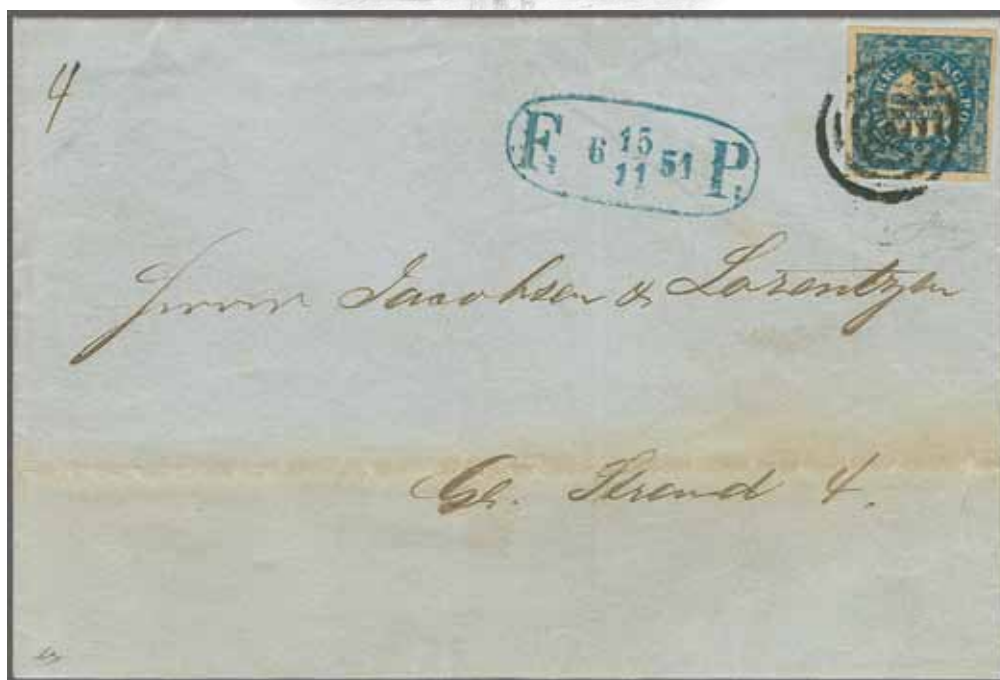 4
F. 6 15/11 51 P.
KGL. PO
Herrer Jacobsen & Lorentzen
Gl. Strand 4.